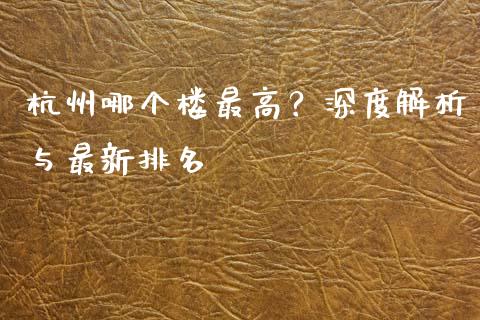 杭州哪个楼最高？深度解析
与最新排名